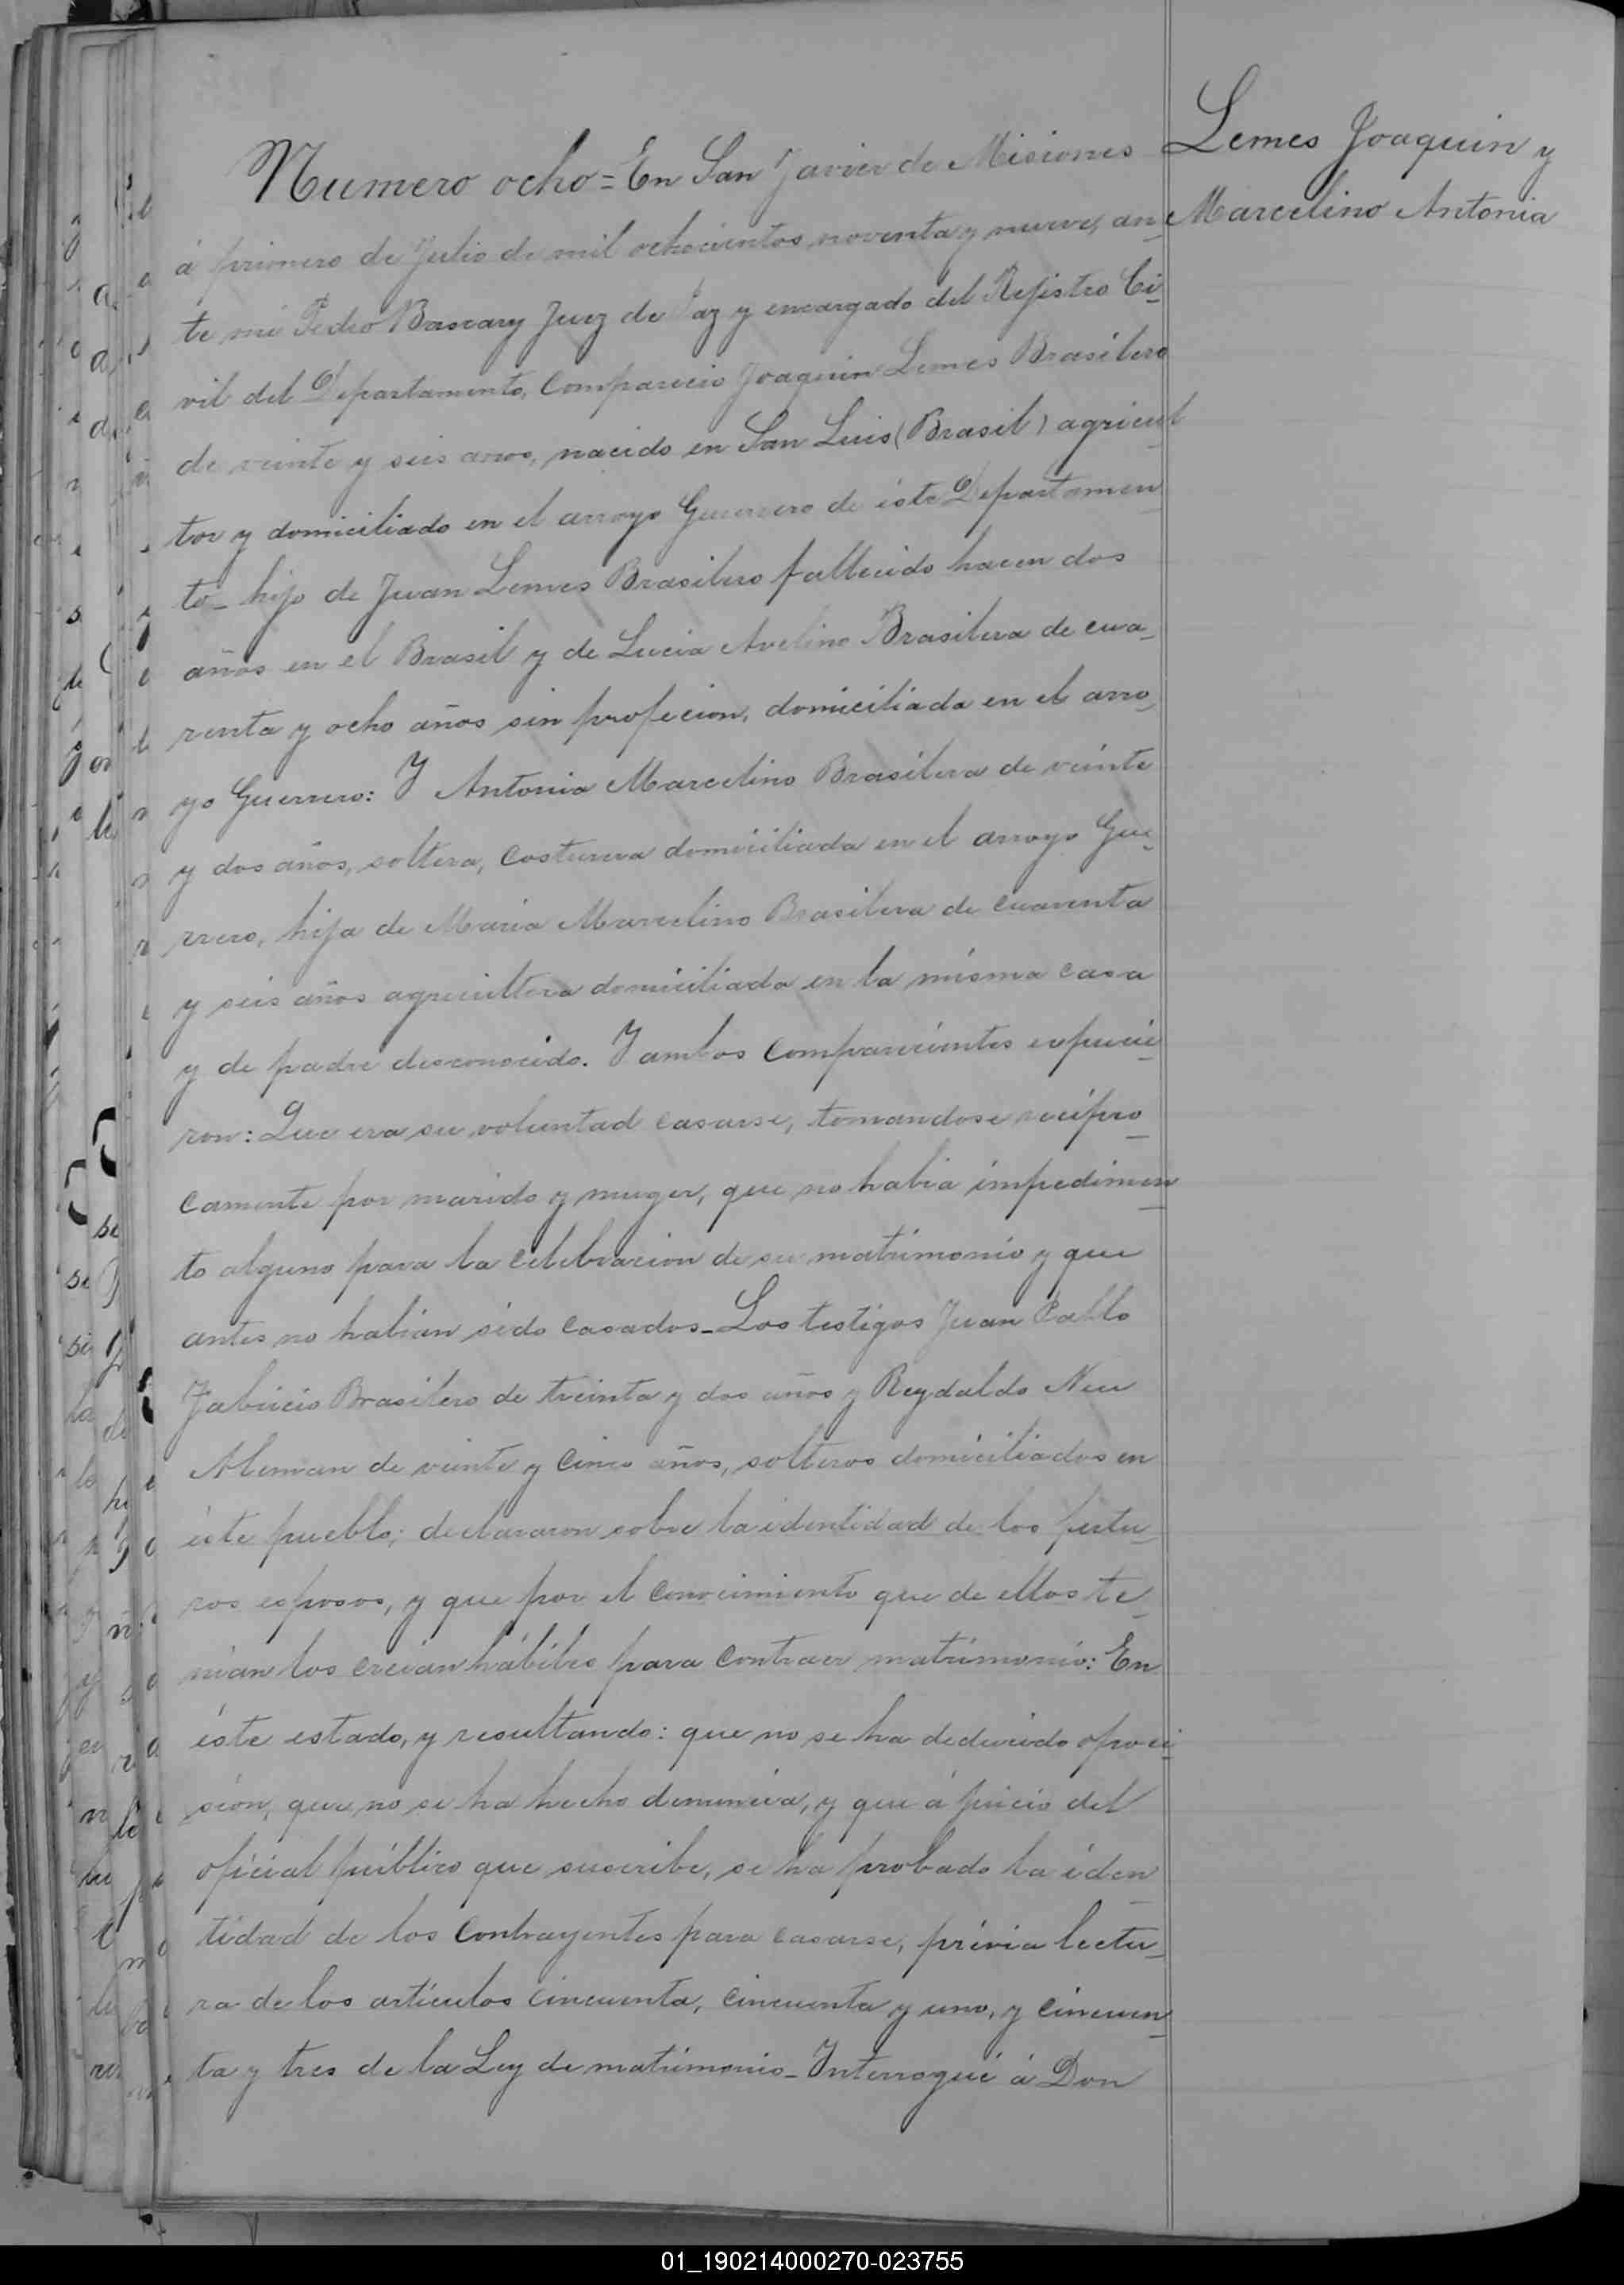 Lemes Joaquin y
Marcelino Antonia
Numero ocho = En San Javier de Misiones
á primero de Julio de mil ochocientos noventa y nueve, an_
te mi Pedro Bascary Juez de Paz y encargado del Rejistro Ci_
vil del Departamento, Comparecio Joaquin Lemes Brasilero
de veinte y seis anos, nacido en San Luis (Brasil) agricul_
tor y domiciliado en el arroyo Guerrero de éste Departamen_
to_ hijo de Juan Lemes Brasilero fallecido hacen dos
años en el Brasil y de Lucia Avelino Brasilera de cua_
renta y ocho años sin profecion, domiciliada en el arro_
yo Guerrero: Y Antonia Marcelino Brasilera de veinte
y dos años, soltera, Costurera domiciliada en el arroyo Gue_
rrero, hija de Maria Marcelino Brasilera de Cuarenta
y seis años agricultora domiciliada en la misma casa
y de padre desconocido. Y ambos Comparecientes expucie_
ron: Que era su voluntad casarse, tomandose recipro_
camente por marido y muger, que no habia impedimen_
to alguno para la celebracion de su matrimonio y que
antes no habian sido casados_ Los testigos Juan Pablo
Fabricio Brasilero de treinta y dos años y Reydaldo Neu
Aleman de veinte y Cinco años, solteros domiciliados en
éste pueblo; declararon sobre la identidad de los futu_
ros esposos, y que por el Conocimiento que de ellos te_
nian los creian hábiles para Contraer matrimonio: En
éste estado, y resultando: que no se ha deducido opoci_
sion, que no se ha hecho denuncia, y que á juicio del
oficial público que suscribe, se ha probado la iden_
tidad de los Contrayentes para casarse, prévia lectu_
ra de los artículos cincuenta, cincuenta y uno, y cincuen_
ta y tres de la Ley de matrimonio_ Interrogué á Don
01_190214000270-023755